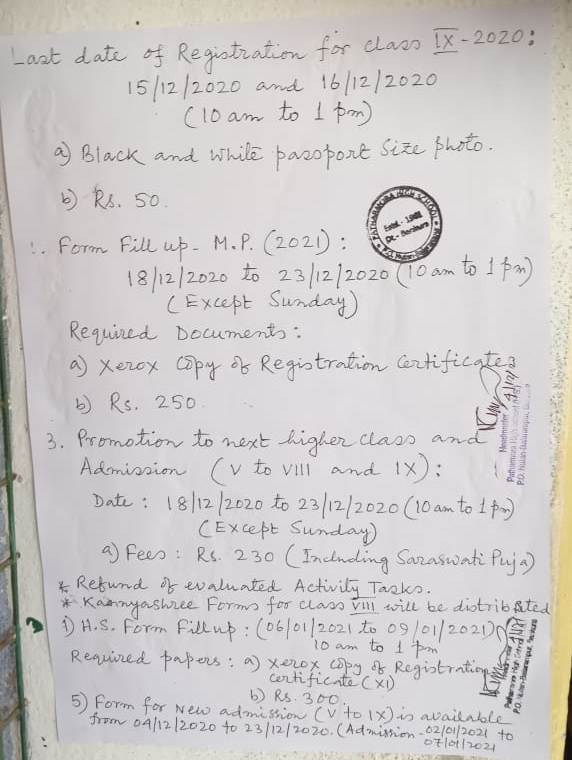 Last date of Registration for class IX-2020:
15/12/2020 and 16/12/2020
(10 am to 1 pm)
a) Black and white passport size photo.
b) Rs. 50.
PATHARMORA HIGH SCHOOL
Form Fill up - M.P. (2021) :
18/12/2020 to 23/12/2020 (10 am to 1 pm)
(Except Sunday)
Required Documents :
a) Xerox copy of Registration Certificates
b) Rs. 250.
3. Promotion to next higher class and
Admission (V to VIII and IX) :
Date : 18/12/2020 to 23/12/2020 (10 am to 1 pm)
(Except Sunday)
a) Fees : Rs. 230 (Including Saraswati Puja)
* Refund of evaluated Activity Tasks.
* Kannyashree Forms for class VIII will be distributed
H.S. Form Fill up : (06/01/2021 to 09/01/2021)
10 am to 1 pm
Required papers : a) Xerox copy of Registration
certificate (XI)
b) Rs. 300.
5) Form for New admission (V to IX) is available
from 04/12/2020 to 23/12/2020. (Admission - 02/01/2021 to
07/01/2021